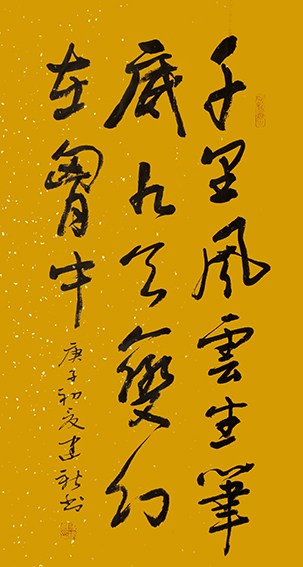 千里風雲生筆
底九天變幻
在胷中
庚子初夏建新书